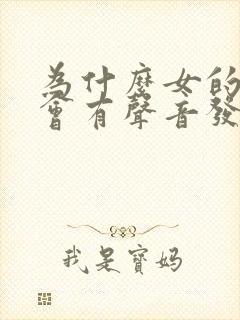 為什麼女的
會有聲音發
我是寶媽